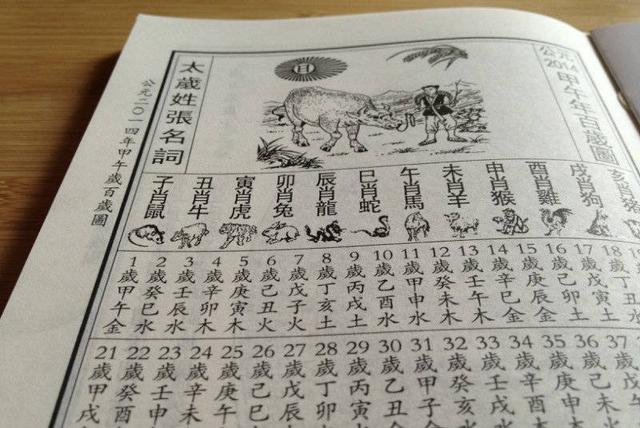 公元2014甲午年百歲圖
日
太歲姓張名詞
公元二〇一四年甲午歲百歲圖
子肖鼠
丑肖牛
寅肖虎
卯肖兔
辰肖龍
巳肖蛇
午肖馬
未肖羊
申肖猴
酉肖雞
戌肖狗
亥肖
1歲甲午金
2歲癸巳水
3歲壬辰水
4歲辛卯木
5歲庚寅木
6歲己丑火
7歲戊子火
8歲丁亥土
9歲丙戌土
10歲乙酉水
11歲甲申水
12歲癸未木
13歲壬午木
14歲辛巳金
15歲庚辰金
16歲己卯土
17歲戊寅土
18歲丁
21歲甲戌
22歲癸酉
23歲壬申
24歲辛未
25歲庚午
26歲己巳
27歲戊辰
28歲丁卯
29歲丙寅
30歲乙丑金
31歲甲子金
32歲癸亥水
33歲壬戌水
34歲辛酉木
35歲庚申木
36歲己未
37歲戊午